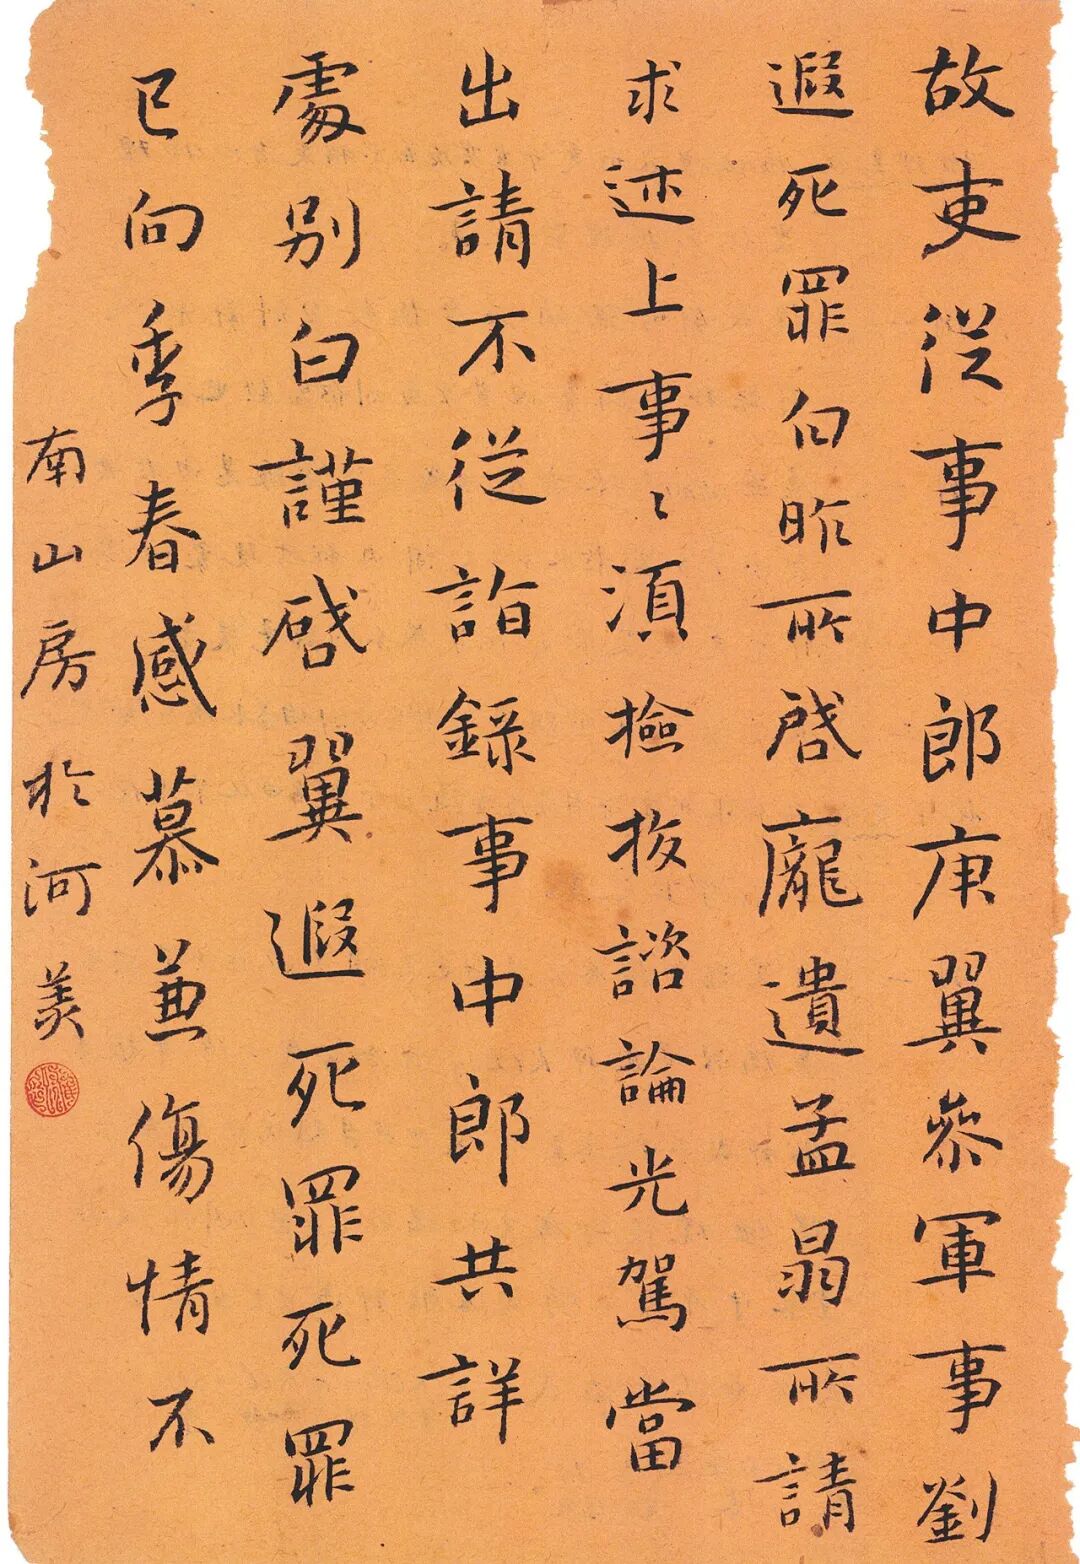 故吏從事中郎庾翼參軍事劉
遐死罪白昨所啓龐遺孟昜所請
求述上事事〻須撿挍諮論光駕當
出請不從詣錄事中郎共詳
處別白謹啓翼遐死罪死罪
已向季春感慕兼傷情不
南山房於河美